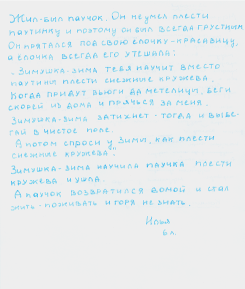 Жил-был паучок. Он не умел плести
паутинку и поэтому он был всегда грустным
Он прятался под свою ёлочку-красавицу,
а ёлочка всегда его утешала:
- Зимушка-зима тебя научит вместо
паутины плести снежные кружева.
Когда придут вьюги да метелицы, беги
скорей из дома и прячься за меня.
Зимушка-зима затихнет - тогда и выбе-
гай в чистое поле.
А потом спроси у Зимы, как плести
снежные кружева".
Зимушка-зима научила паучка плести
кружева и ушла.
А паучок возвратился домой и стал
жить-поживать и горя не знать.
Илья
6 л.